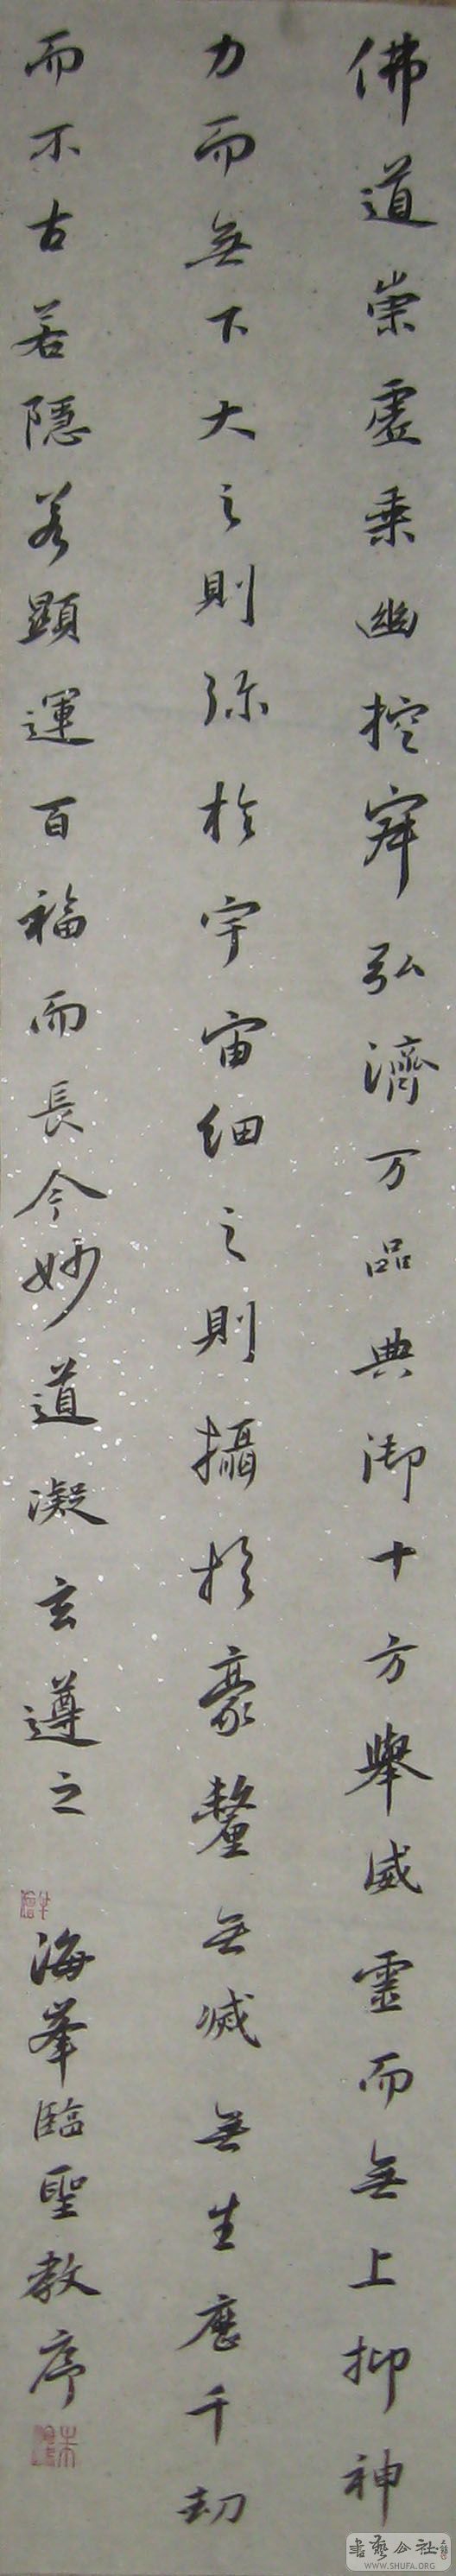 佛道崇虛乘幽控寂弘濟万品典御十方舉威靈而無上抑神
力而無下大之則弥於宇宙細之則攝於豪釐無滅無生歷千劫
而不古若隱若顯運百福而長今妙道凝玄遵之
海峯臨聖教序
書藝公社
WWW.SHUFA.ORG